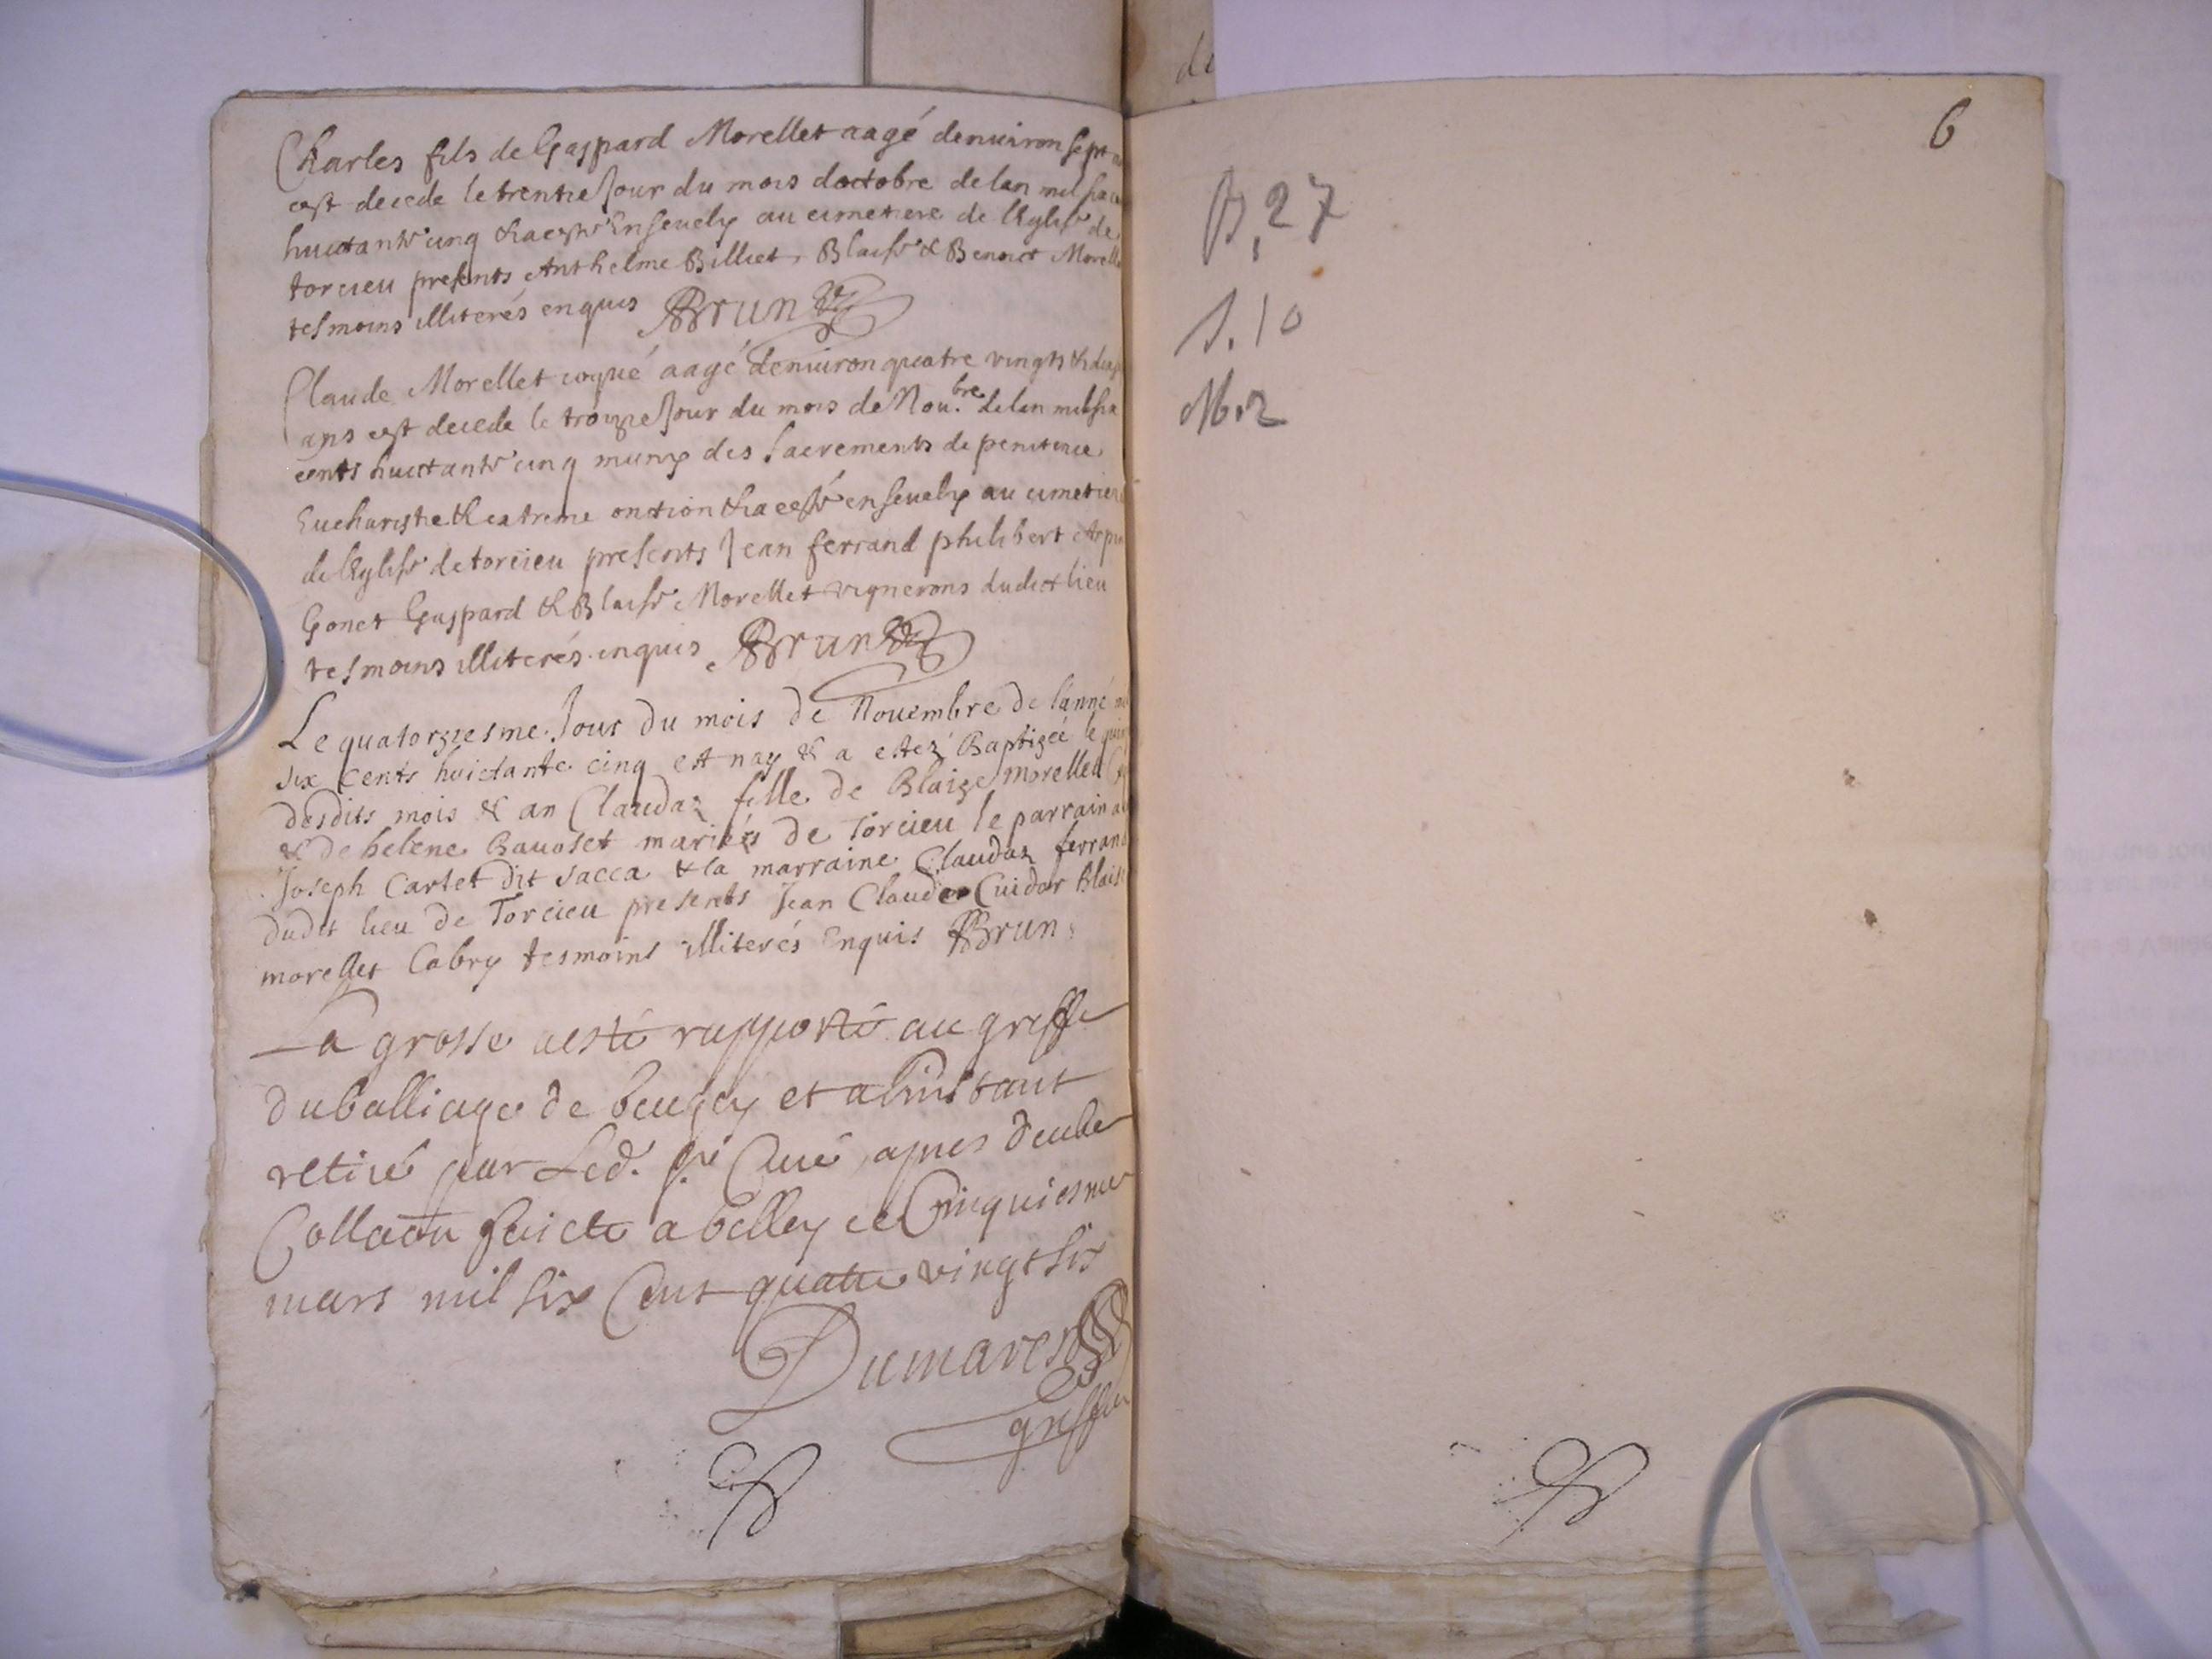 Charles fils de Gaspard Morellet aagé denuiron sept
est decede le trentie Jour du mois doctobre de lan mil six
huictante cinq & a este Enseuely au cimetiere de lEglise de
torcieu presents Anthelme Billiet, Blaise & Benoict Morell
tesmoins illiterés enquis Brun
Claude Morellet coqué aagé denuiron quatre vingts &
ans est decede le troizie Jour du mois de Nou.bre de lan mil six
cents huictante cinq muny des Sacrements de penitence
Eucharistie & extreme onction & a esté enseuely au cimetier
de lEglise de torcieu presents Jean ferrand philibert
Gonet Gaspard & Blaise Morellet vignerons dudict lieu
tesmoins illiterés enquis Brun
Le quatorziesme Jour du mois de Nouembre de lanné
six cents huictante cinq est nay & a estez Baptizée le
desdits mois & an Claudaz fille de Blaize morellet
& de helene Bauoset mariés de Torcieu le parrain a
Joseph Cartet dit sacca & la marraine Claudaz ferran
dudit lieu de Torcieu presents Jean Claude Cuidar Blais
morellet Cabry tesmoins illiterés Enquis Brun
La grosse a esté rapporté au greffe
du balliage de beugey et a linstant
retiré par Led. Sr Curé, apres deube
Collaon faicte a belley ce Cinquiesme
mars mil six Cent quatre vingt six
Dumarest
greffier
6
B, 27
S. 10
M. 2